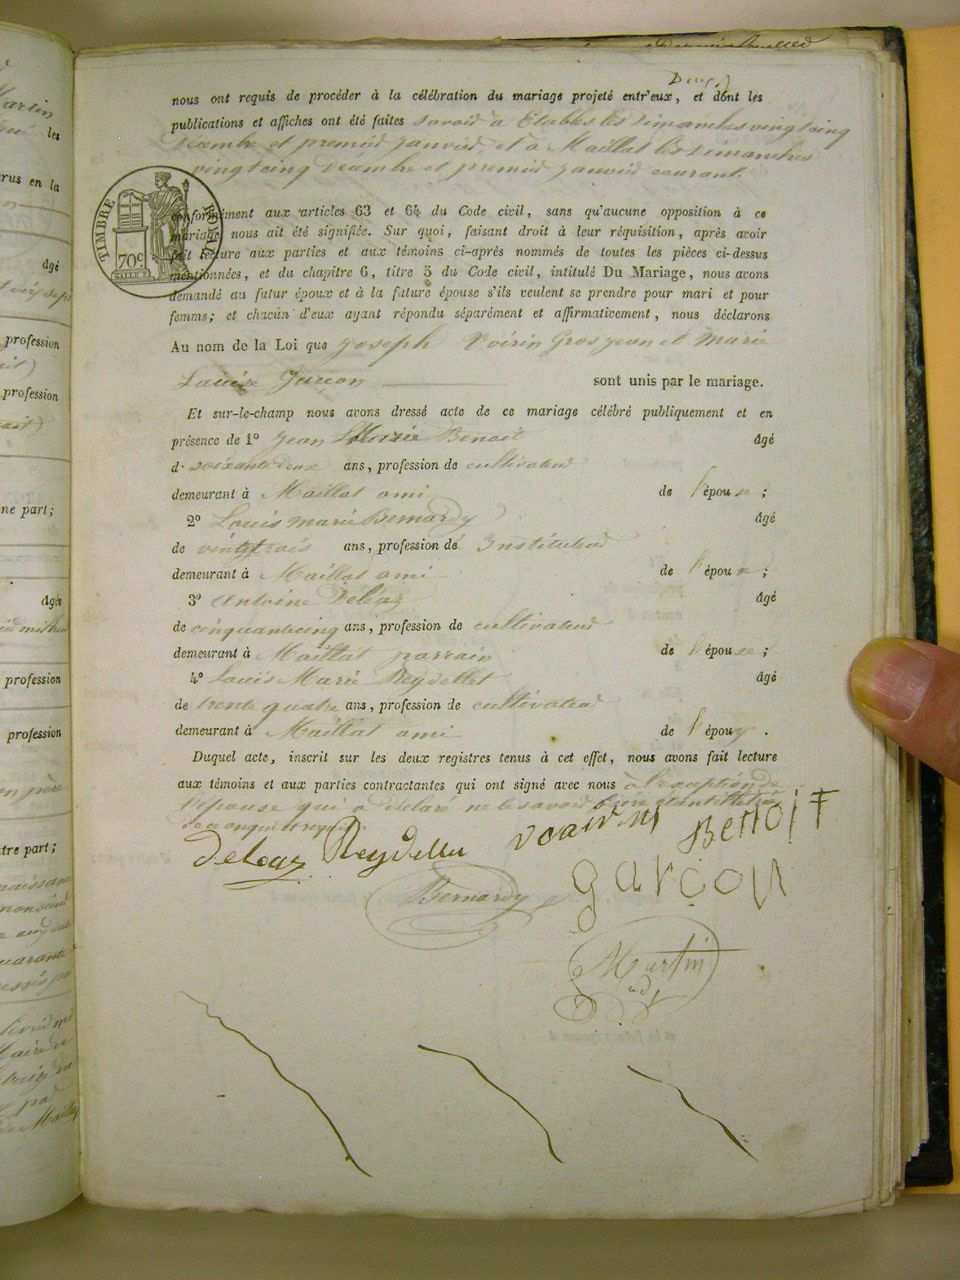 nous ont requis de procéder à la célébration du mariage projeté entr'eux, et dont les
publications et affiches ont été faites savoir à Etables les Dimanches vingt cinq
Decembre et premier janvier et à Maillat les Dimanches
vingt cinq Decembre et premier janvier courant.
TIMBRE ROYAL
70c
conformément aux articles 63 et 64 du Code civil, sans qu'aucune opposition à ce
mariage nous ait été signifiée. Sur quoi, faisant droit à leur réquisition, après avoir
fait lecture aux parties et aux témoins ci-après nommés de toutes les pièces ci-dessus
mentionnées, et du chapitre 6, titre 5 du Code civil, intitulé Du Mariage, nous avons
demandé au futur époux et à la future épouse s'ils veulent se prendre pour mari et pour
femme; et chacun d'eux ayant répondu séparément et affirmativement, nous déclarons
Au nom de la Loi que joseph Voirin Grosjean et Marie
Louise sont unis par le mariage.
Et sur-le-champ nous avons dressé acte de ce mariage célébré publiquement et en
présence de 1º jean Marie Benoit âgé
de soixante deux ans, profession de cultivateur
demeurant à Maillat ami de l'épouse;
2º Louis marie Bernardy âgé
de vingt trois ans, profession de Instituteur
demeurant à Maillat ami de l'épouse;
3º Antoine Deléaz âgé
de cinquante cinq ans, profession de cultivateur
demeurant à Maillat parrain de l'épouse;
4º Louis Marie Reydellet âgé
de trente quatre ans, profession de cultivateur
demeurant à Maillat ami de l'épouse.
Duquel acte, inscrit sur les deux registres tenus à cet effet, nous avons fait lecture
aux témoins et aux parties contractantes qui ont signé avec nous à l'exception de
l'épouse qui a déclaré ne le savoir
de ce enquis et requis.
deleaz Reydellet Benoit
Bernardy garçon
Martin
adj